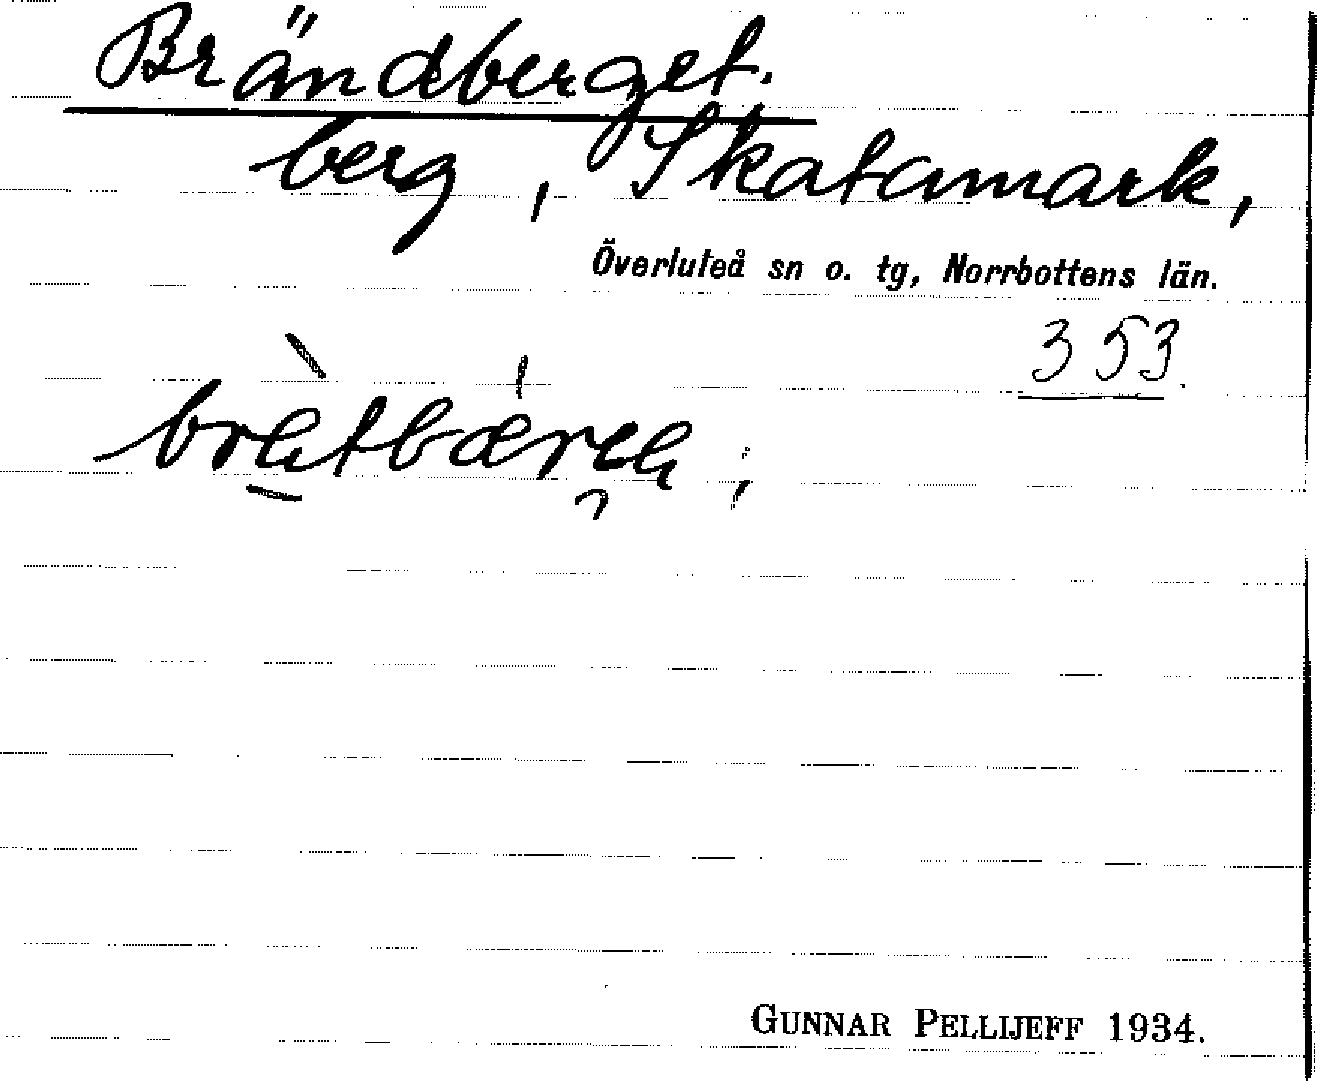 Brändberget.
berg, Skatamark,
Överluleå sn o. tg, Norrbottens län.
353.
GUNNAR PELLIJEFF 1934.